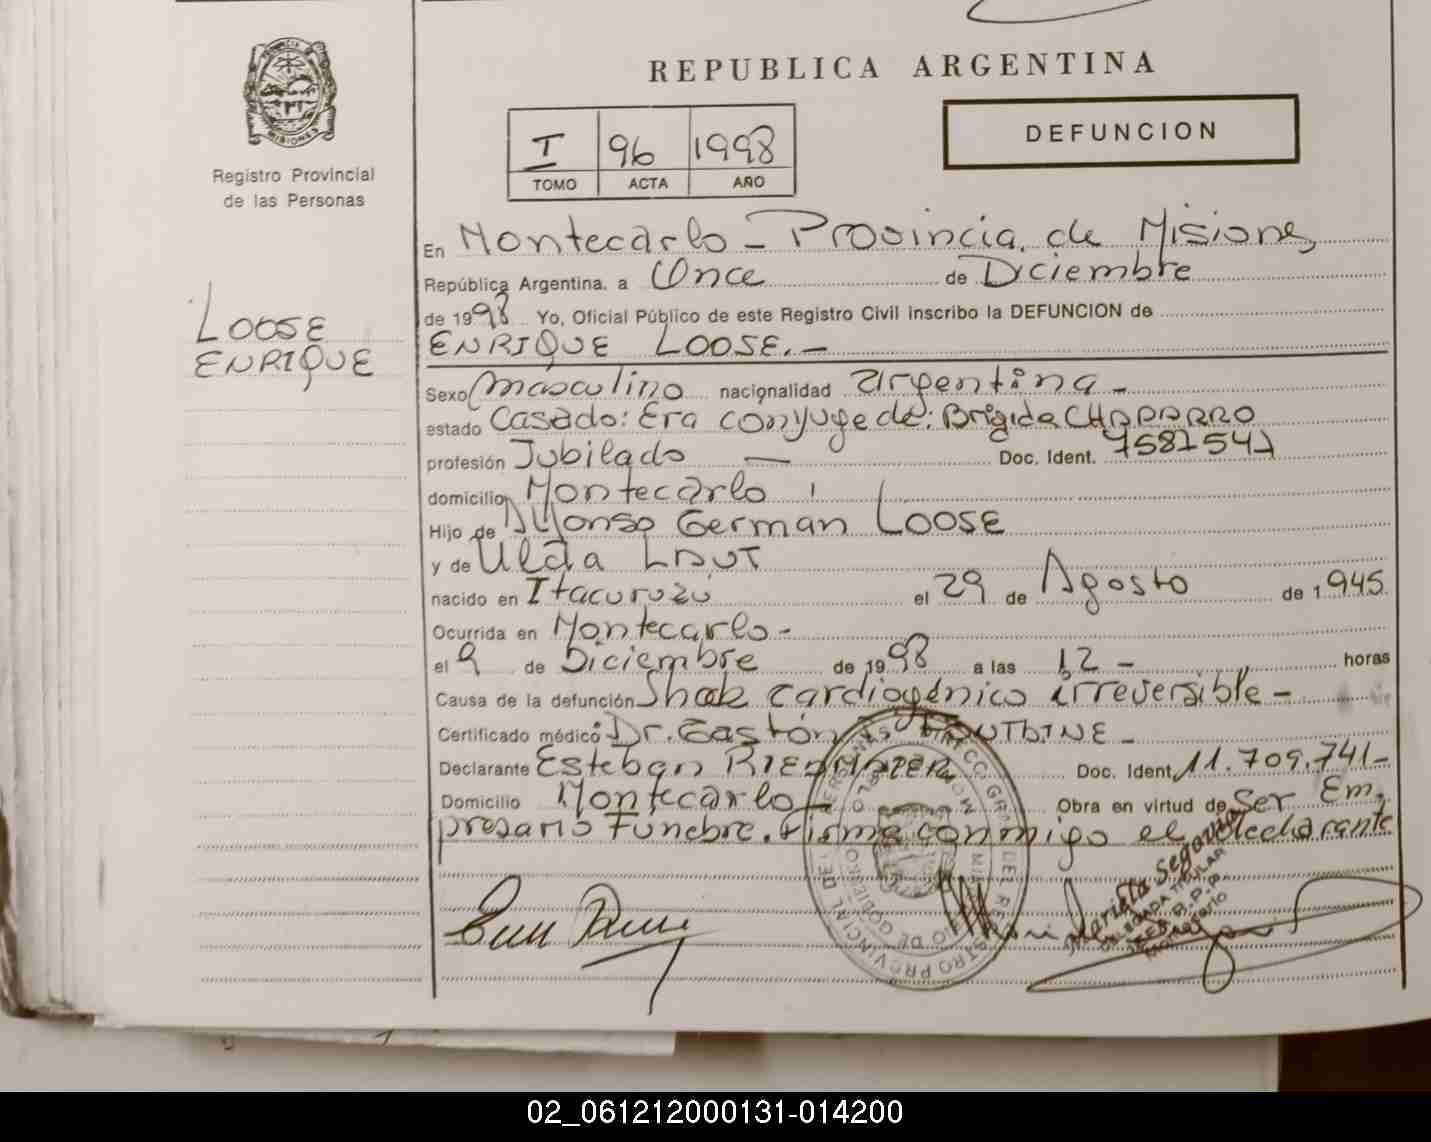 REPUBLICA ARGENTINA
MISIONES
Registro Provincial
de las Personas
I 96 1998
TOMO ACTA AÑO
DEFUNCION
LOOSE
ENRIQUE
En Montecarlo - Provincia de Misiones
República Argentina, a Once de Diciembre
de 1998 Yo, Oficial Público de este Registro Civil inscribo la DEFUNCION de
ENRIQUE LOOSE.-
Sexo masculino nacionalidad argentina -
estado Casado: Era conyuge de: Brígida CHAPARRO
profesión Jubilado — Doc. Ident. 7581541
domicilio Montecarlo
Hijo de Alfonso German LOOSE
y de Ulda LAUT
nacido en Itacuruzú el 29 de Agosto de 1945
Ocurrida en Montecarlo-
el 9 de Diciembre de 1998 a las 12 - horas
Causa de la defunción Shok cardiogénico irreversible -
Certificado médico Dr. Gastón
Declarante Esteban Doc. Ident. 11.709.741-
Domicilio Montecarlo - Obra en virtud de ser Em.
presario Funebre. Firma conmigo el declarante
Mariela Segovia
DELEGADA TITULAR
02_061212000131-014200